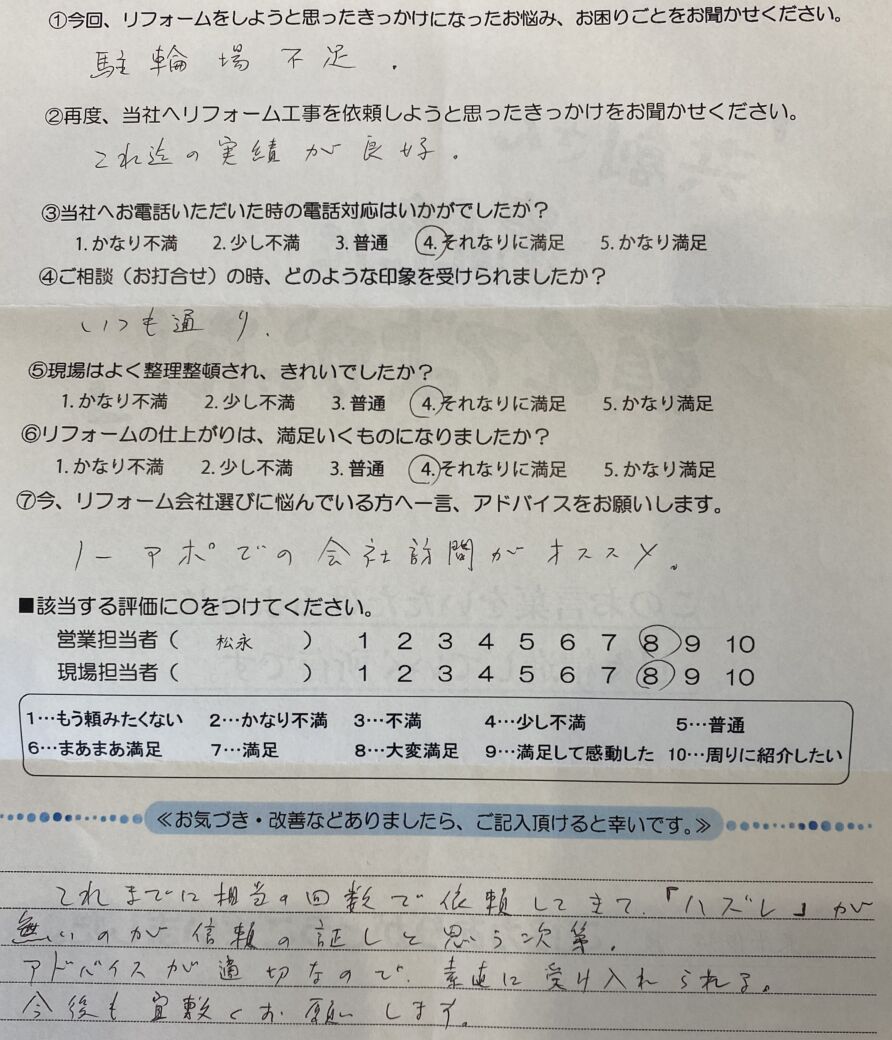 ①今回、リフォームをしようと思ったきっかけになったお悩み、お困りごとをお聞かせください。
駐輪場不足.
②再度、当社へリフォーム工事を依頼しようと思ったきっかけをお聞かせください。
これ迄の実績が良好.
③当社へお電話いただいた時の電話対応はいかがでしたか？
1.かなり不満 2.少し不満 3.普通 4.それなりに満足 5.かなり満足
④ご相談（お打合せ）の時、どのような印象を受けられましたか？
いつも通り.
⑤現場はよく整理整頓され、きれいでしたか？
1.かなり不満 2.少し不満 3.普通 4.それなりに満足 5.かなり満足
⑥リフォームの仕上がりは、満足いくものになりましたか？
1.かなり不満 2.少し不満 3.普通 4.それなりに満足 5.かなり満足
⑦今、リフォーム会社選びに悩んでいる方へ一言、アドバイスをお願いします。
ノーアポでの会社訪問がオススメ。
■該当する評価に○をつけてください。
営業担当者（ 松永 ） 1 2 3 4 5 6 7 8 9 10
現場担当者（ ） 1 2 3 4 5 6 7 8 9 10
1…もう頼みたくない 2…かなり不満 3…不満 4…少し不満 5…普通
6…まあまあ満足 7…満足 8…大変満足 9…満足して感動した 10…周りに紹介したい
≪お気づき・改善などありましたら、ご記入頂けると幸いです。≫
これまでに相当の回数で依頼してきて、「ハズレ」が
無いのが信頼の証しと思う次第.
アドバイスが適切なので、素直に受け入れられる。
今後も宜敷くお願いします。